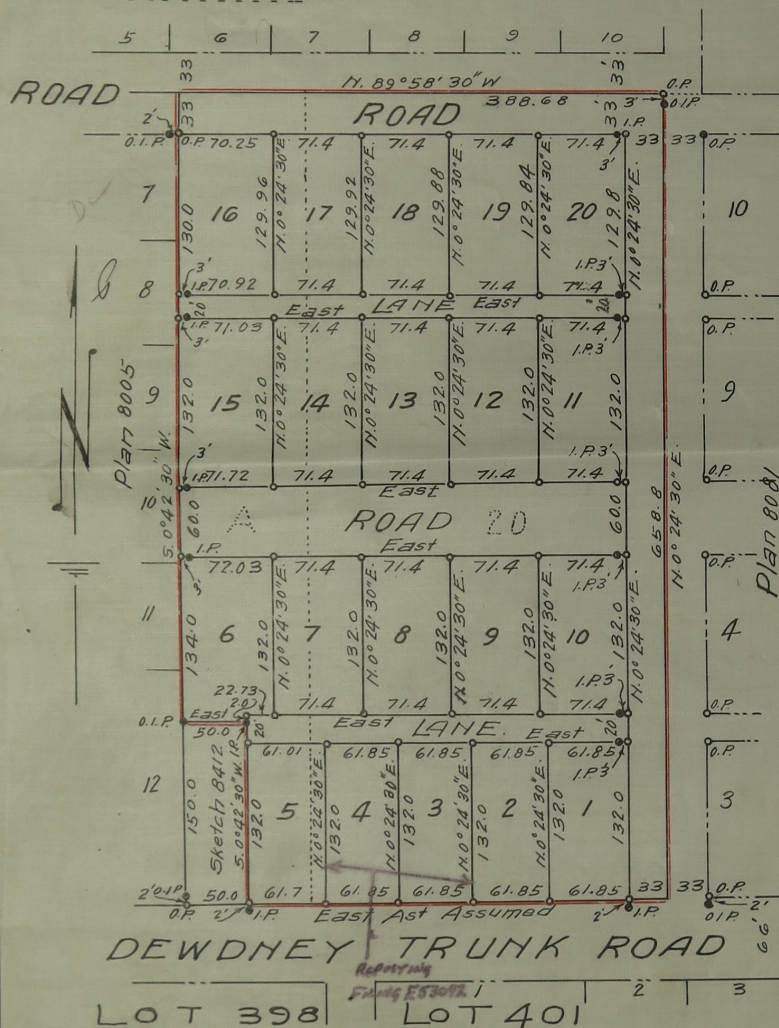 5 6 7 8 9 10
33 33'
N. 89°58'30"W O.P.
ROAD ROAD 388.68 3' O.I.P.
2' 33 33 I.P.
O.I.P. O.P. 70.25 71.4 71.4 71.4 71.4 33 33 O.P.
3'
7 130.0 16 129.96 N.0°24'30"E. 17 129.92 N.0°24'30"E. 18 129.88 N.0°24'30"E. 19 129.84 N.0°24'30"E. 20 129.8 N.0°24'30"E. 10
3' I.P.3'
8 I.P. 70.92 71.4 71.4 71.4 71.4 O.P.
20' East LANE East 20'
I.P. 71.03 71.4 71.4 71.4 71.4 O.P.
3' I.P.3'
Plan 8005
9 132.0 15 132.0 N.0°24'30"E. 14 132.0 N.0°24'30"E. 13 132.0 N.0°24'30"E. 12 132.0 N.0°24'30"E. 11 132.0 9
3' I.P.3'
I.P. 71.72 71.4 71.4 71.4 71.4 O.P.
East
S.0°42'30"W.
10 60.0 A ROAD 20 60.0 658.8 N.0°24'30"E. Plan 8081
East
I.P. 72.03 71.4 71.4 71.4 71.4 O.P.
3' I.P.3'
11 134.0 6 132.0 N.0°24'30"E. 7 132.0 N.0°24'30"E. 8 132.0 N.0°24'30"E. 9 132.0 N.0°24'30"E. 10 132.0 N.0°24'30"E. 4
22.73 I.P.3'
2.0 71.4 71.4 71.4 71.4 O.P.
O.I.P. East 20' East LANE. East 20'
50.0 I.P. 61.01 61.85 61.85 61.85 61.85 O.P.
I.P.3'
12 150.0 Sketch 8412 S.0°42'30"W. 132.0 5 N.0°24'30"E. 132.0 4 N.0°24'30"E. 132.0 3 N.0°24'30"E. 132.0 2 N.0°24'30"E. 1 132.0 3
2' O.I.P. 50.0 61.7 61.85 61.85 61.85 61.85 33 33 O.P.
O.P. 2' I.P. East Ast Assumed 2' I.P. O.I.P. 2'
66'
DEWDNEY TRUNK ROAD
REPOSTING
FILING E53092
1 2 3
LOT 398 LOT 401